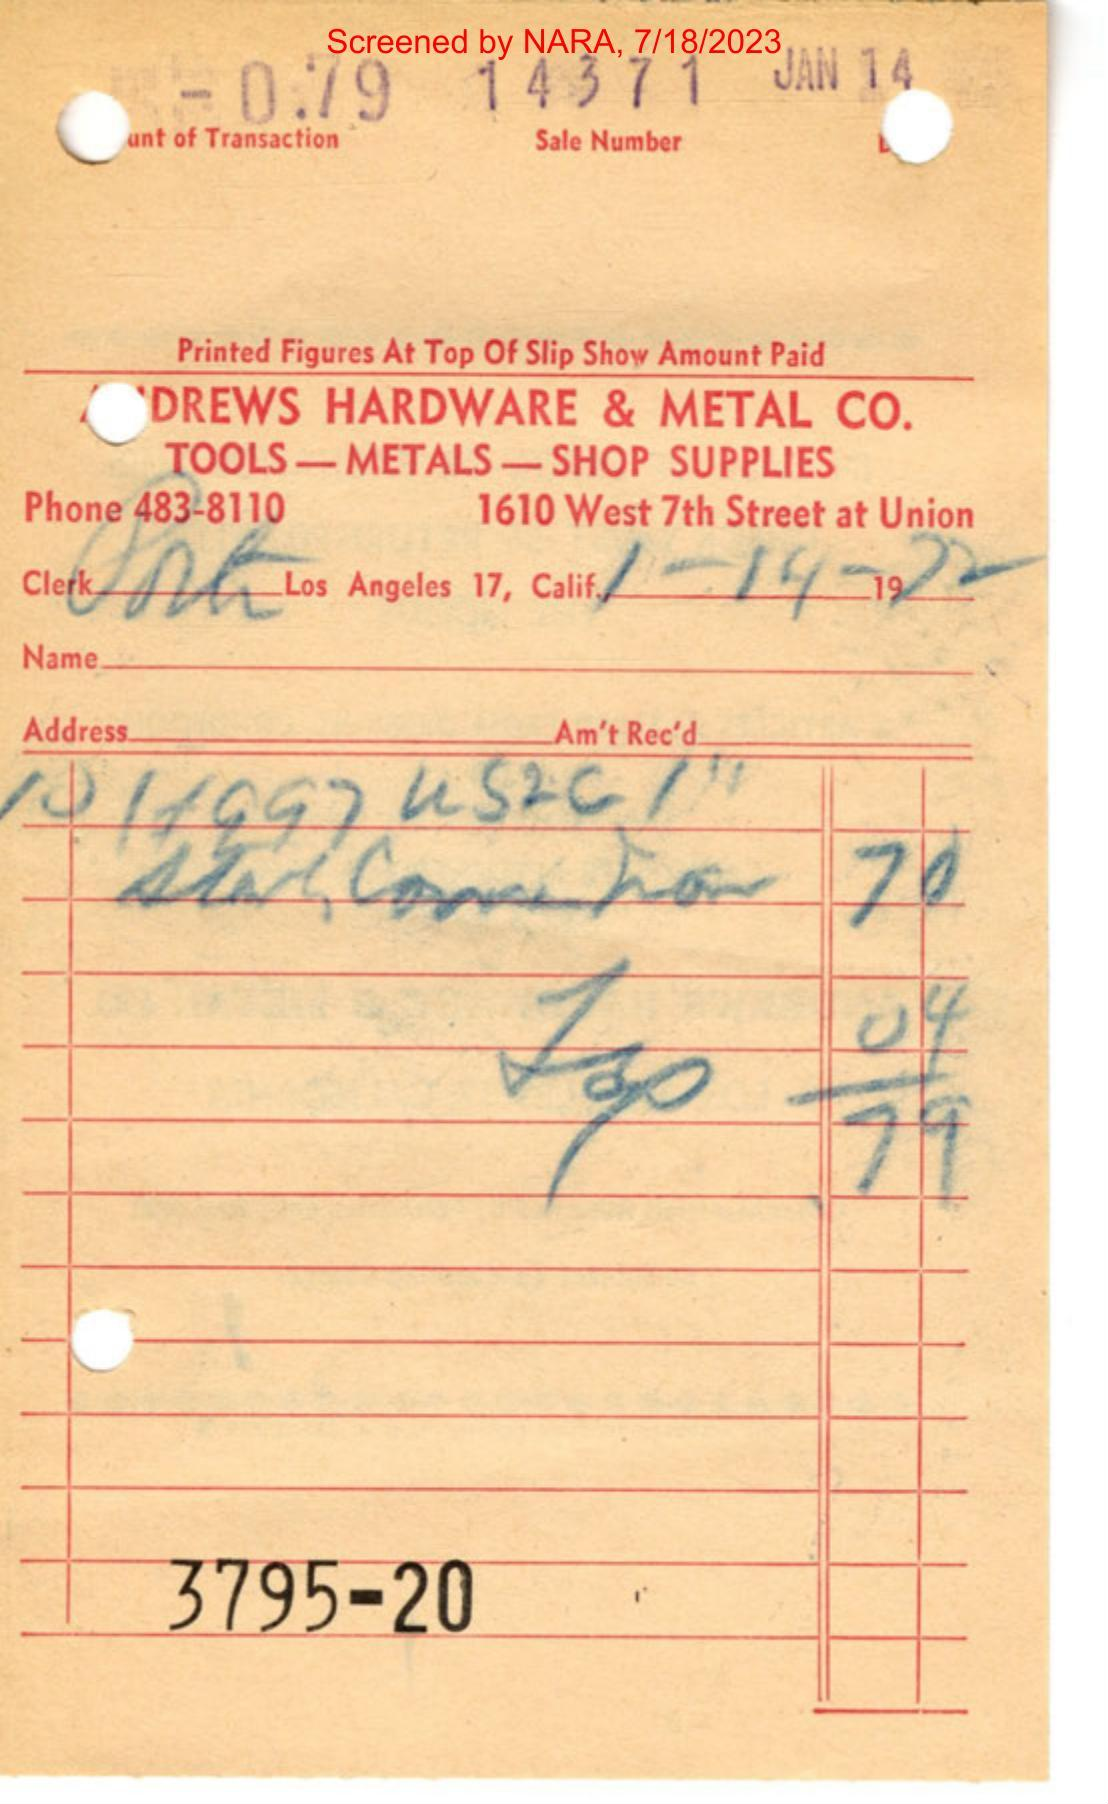 Screened by NARA, 7/18/2023
-0.79 14371 JAN 14
unt of Transaction Sale Number
Printed Figures At Top Of Slip Show Amount Paid
DREWS HARDWARE & METAL CO.
TOOLS — METALS — SHOP SUPPLIES
Phone 483-8110 1610 West 7th Street at Union
Clerk Los Angeles 17, Calif. 1-14-1972
Name
Address Am't Rec'd
10 1"
70
04
79
3795-20